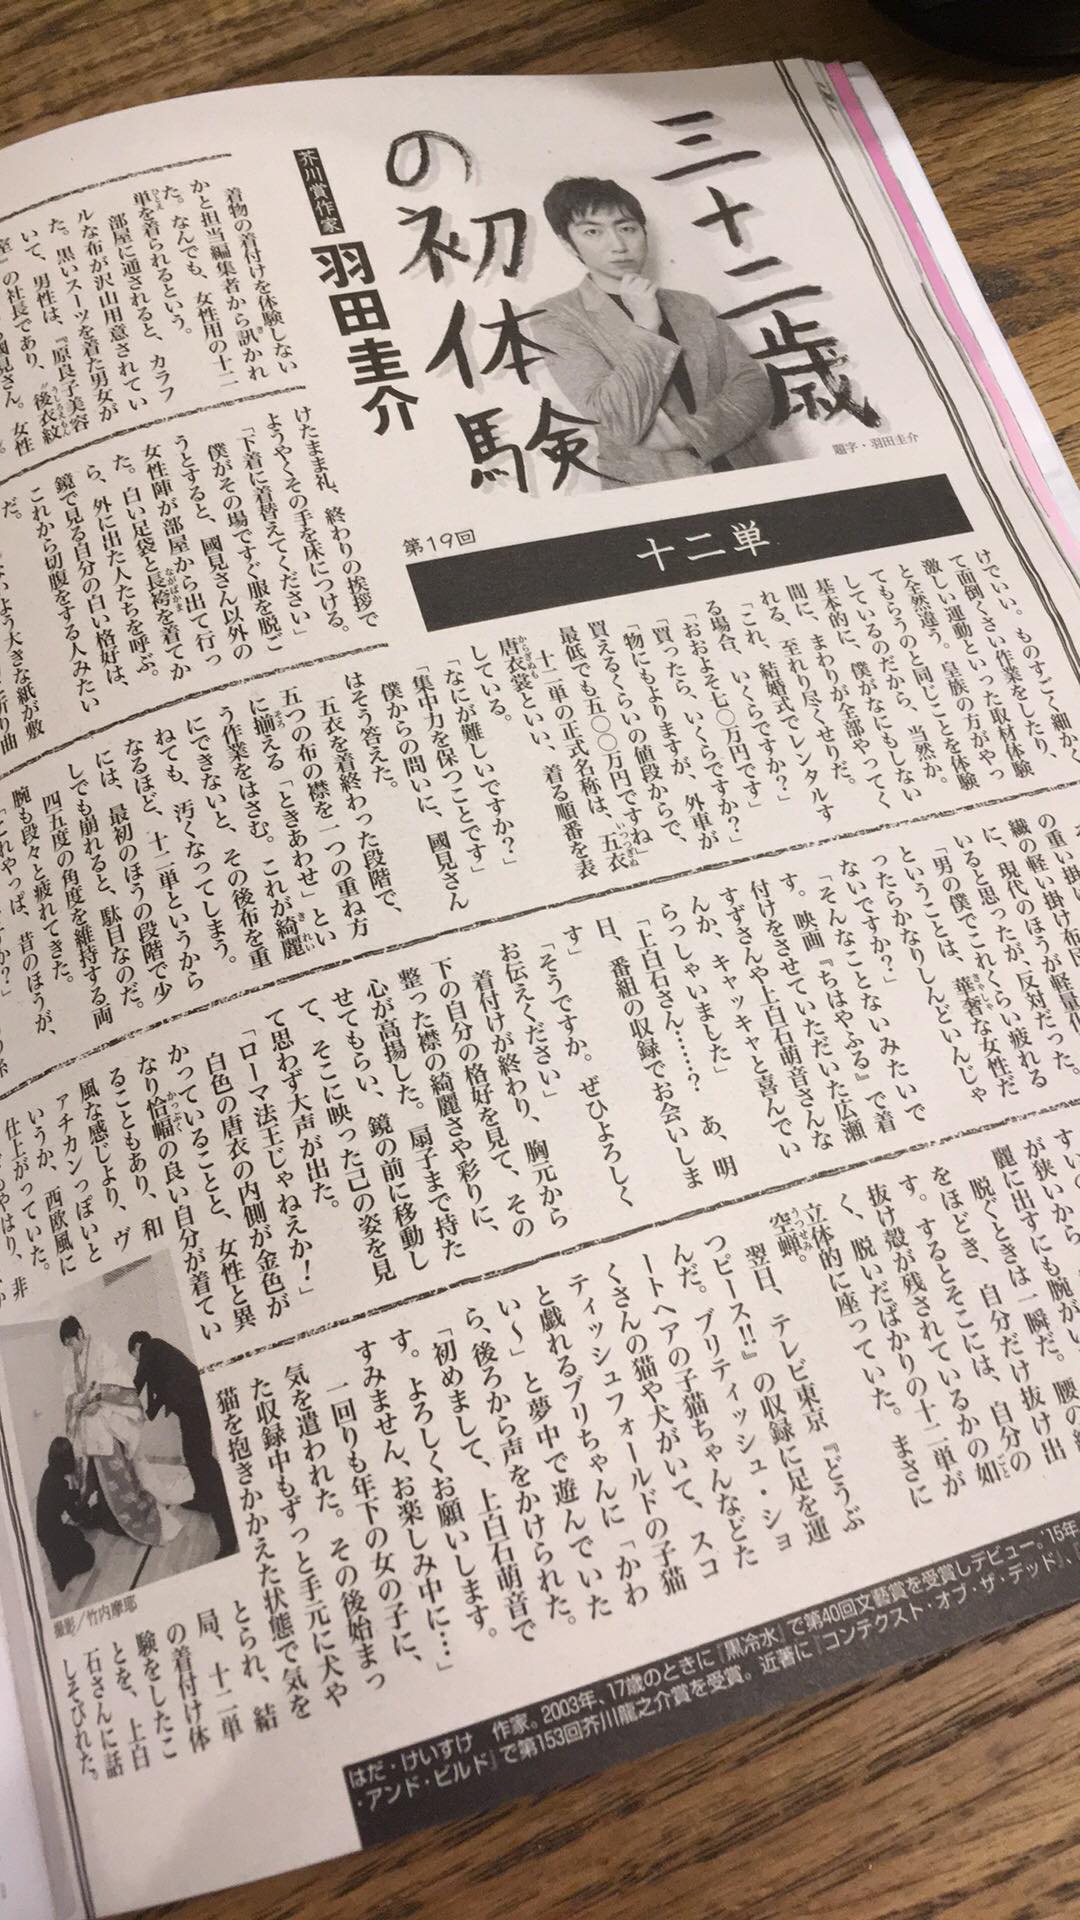 三十二歳
の初体験
題字・羽田圭介
芥川賞作家
羽田圭介
第19回
十二単
着物の着付けを体験しない
かと担当編集者から訊かれ
た。なんでも、女性用の十二
単を着られるという。
部屋に通されると、カラフ
ルな布が沢山用意されてい
た。黒いスーツを着た男女が
いて、男性は、『原良子美容
室』の社長であり、後衣紋
國見さん。女性
けたまま礼、終わりの挨拶で
ようやくその手を床につける。
「下着に着替えてください」
僕がその場ですぐ服を脱ご
うとすると、國見さん以外の
女性陣が部屋から出て行っ
た。白い足袋と長袴を着てか
ら、外に出た人たちを呼ぶ。
鏡で見る自分の白い格好は、
これから切腹をする人みたい
だ。
よう大きな紙が敷
折り曲
けでいい。ものすごく細かく
て面倒くさい作業をしたり、
激しい運動といった取材体験
と全然違う。皇族の方がやっ
てもらうのと同じことを体験
しているのだから、当然か。
基本的に、僕がなにもしない
間に、まわりが全部やってく
れる、至れり尽くせりだ。
「これ、結婚式でレンタルす
る場合、いくらですか?」
「おおよそ七〇万円です」
「買ったら、いくらですか?」
「物にもよりますが、外車が
買えるくらいの値段からで、
最低でも五〇〇万円ですね」
十二単の正式名称は、五衣
唐衣裳といい、着る順番を表
している。
「なにが難しいですか?」
「集中力を保つことです」
僕からの問いに、國見さん
はそう答えた。
五衣を着終わった段階で、
五つの布の襟を一つの重ね方
に揃える「ときあわせ」とい
う作業をはさむ。これが綺麗
にできないと、その後布を重
ねても、汚くなってしまう。
なるほど、十二単というから
には、最初のほうの段階で少
しでも崩れると、駄目なのだ。
四五度の角度を維持する両
腕も段々と疲れてきた。
「これやっぱ、昔のほうが、
の重い掛け布団
繊の軽い掛け布団
に、現代のほうが軽量化
いると思ったが、反対だった。
「男の僕でこれくらい疲れる
ということは、華奢な女性だ
ったらかなりしんどいんじゃ
ないですか?」
「そんなことないみたいで
す。映画『ちはやふる』で着
付けをさせていただいた広瀬
すずさんや上白石萌音さんな
んか、キャッキャと喜んでい
らっしゃいました」
「上白石さん……? あ、明
日、番組の収録でお会いしま
す」
「そうですか。ぜひよろしく
お伝えください」
着付けが終わり、胸元から
下の自分の格好を見て、その
整った襟の綺麗さや彩りに、
心が高揚した。扇子まで持た
せてもらい、鏡の前に移動し
て、そこに映った己の姿を見
て思わず大声が出た。
「ローマ法王じゃねえか!」
白色の唐衣の内側が金色が
かっていることと、女性と異
なり恰幅の良い自分が着てい
ることもあり、和
風な感じより、ヴ
アチカンっぽいと
いうか、西欧風に
仕上がっていた。
もやはり、非
が狭いから
麗に出すにも腕がい
脱ぐときは一瞬だ。腰の
をほどき、自分だけ抜け出
す。するとそこには、自分の
抜け殻が残されているかの如
く、脱いだばかりの十二単が
立体的に座っていた。まさに
空蝉。
翌日、テレビ東京『どうぶ
つピース!!』の収録に足を運
んだ。ブリティッシュ・ショ
ートヘアの子猫ちゃんなどた
くさんの猫や犬がいて、スコ
ティッシュフォールドの子猫
と戯れるブリちゃんに「かわ
い〜」と夢中で遊んでいた
ら、後ろから声をかけられた。
「初めまして、上白石萌音で
す。よろしくお願いします。
すみません、お楽しみ中に…」
一回りも年下の女の子に、
気を遣われた。その後始まっ
た収録中もずっと手元に犬や
猫を抱きかかえた状態で気を
とられ、結
局、十二単
の着付け体
験をしたこ
とを、上白
石さんに話
しそびれた。
撮影/竹内摩耶
はだ・けいすけ 作家。2003年、17歳のときに『黒冷水』で第40回文藝賞を受賞しデビュー。'15年、
・アンド・ビルド』で第153回芥川龍之介賞を受賞。近著に『コンテクスト・オブ・ザ・デッド』、